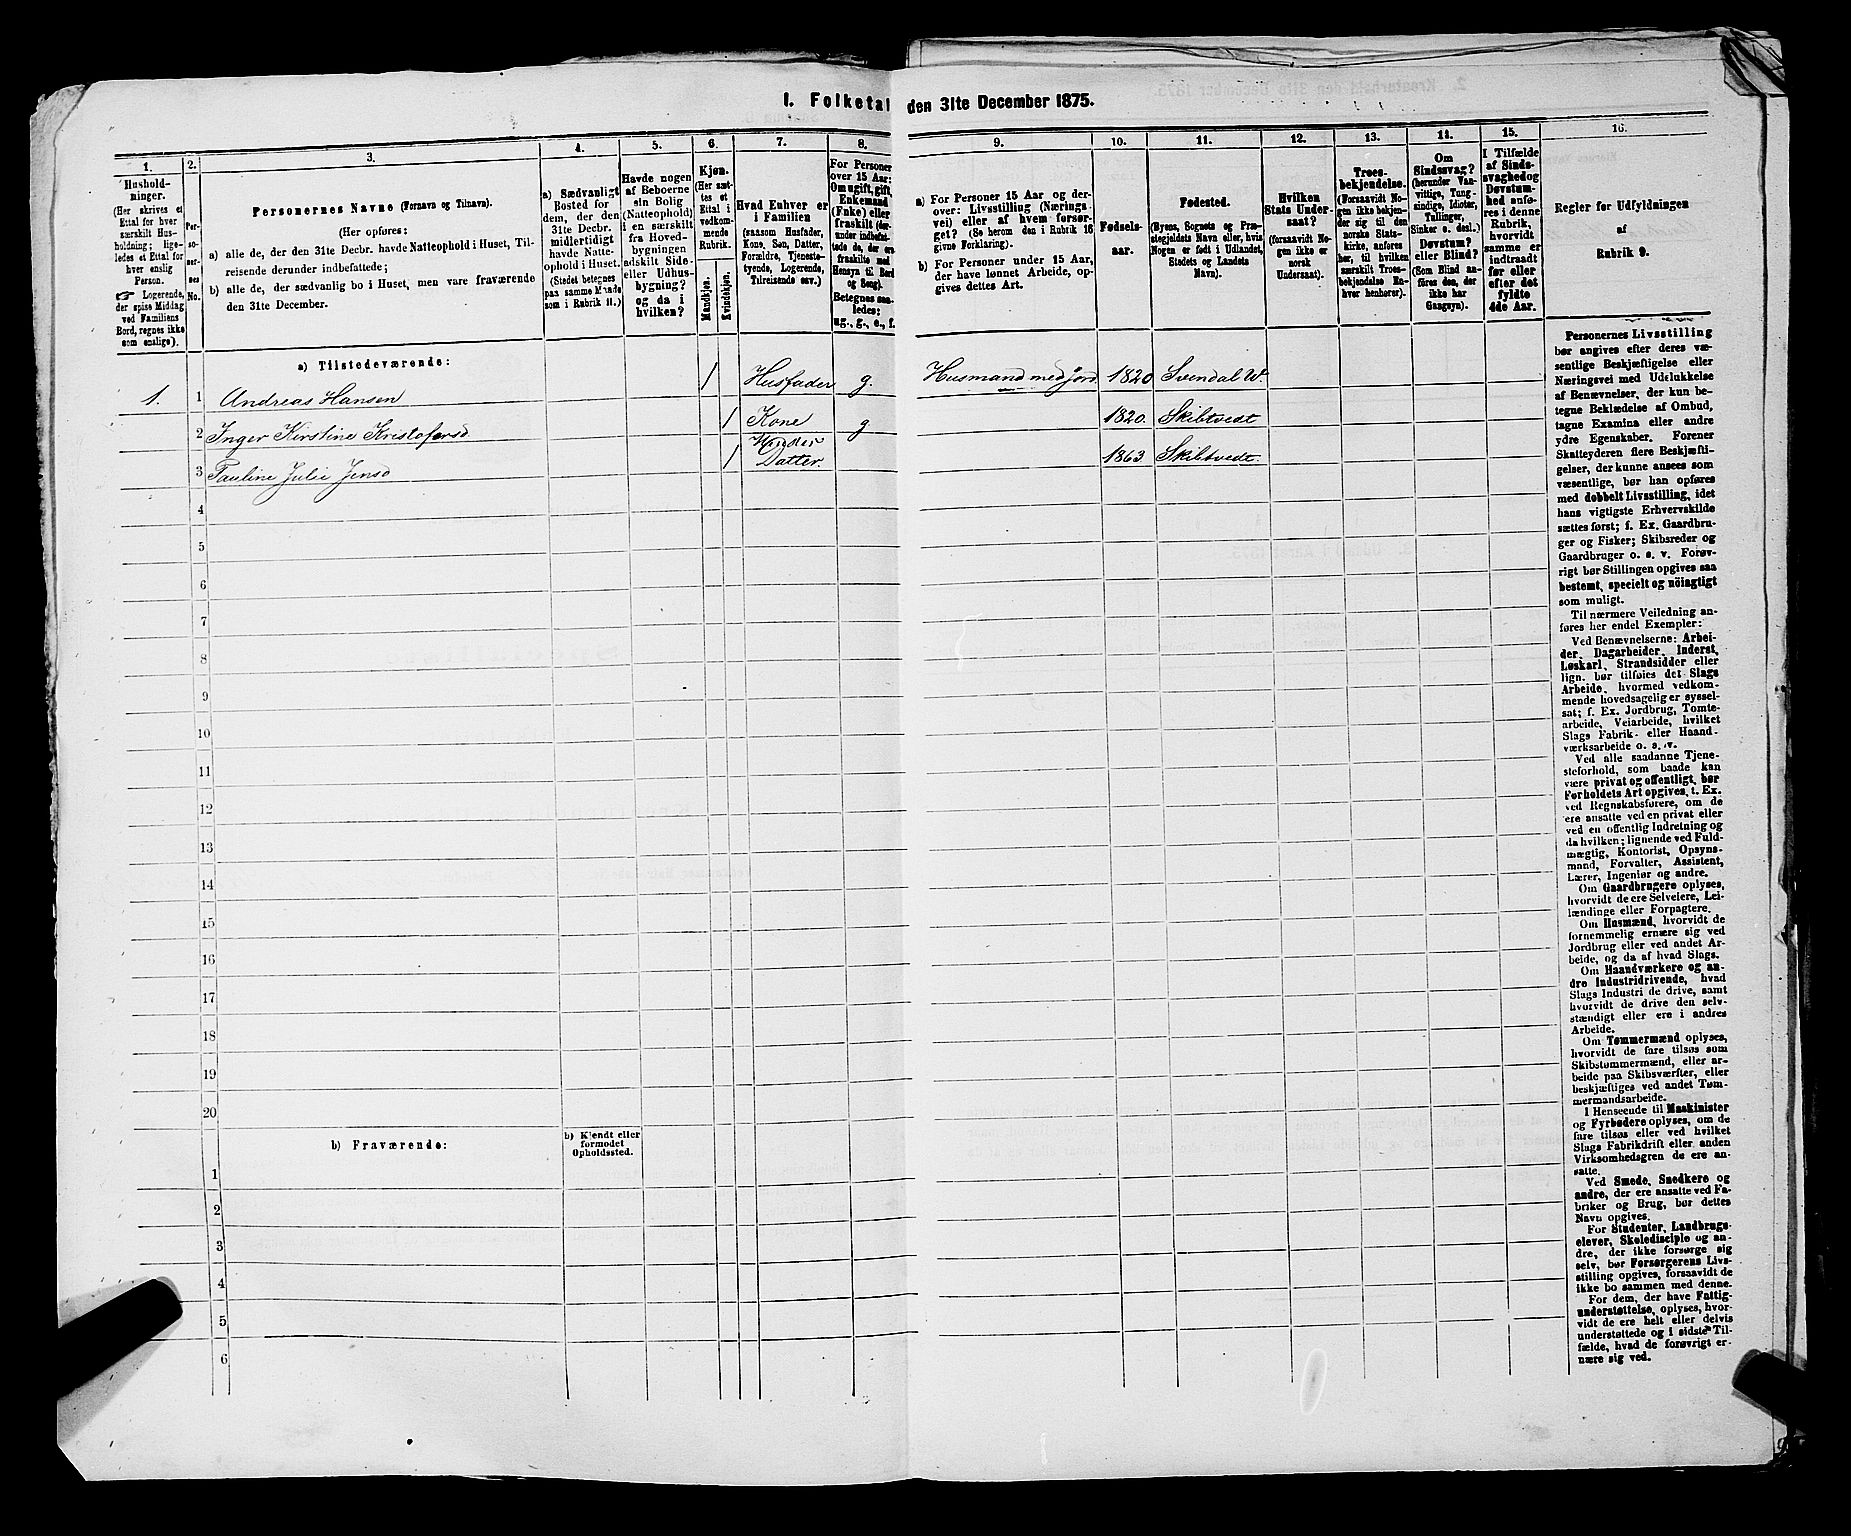 I. Folketal den 31te December 1875.
1.
Hushold-
ninger.
(Her skrives et
Ettal for hver
særskilt Hus-
holdning; lige-
ledes et Ettal for
hver enslig
Person.
☞ Logerende,
der spise Middag
ved Familiens
Bord, regnes ikke
som enslige).
2.
Per-
so-
ner-
nes
No.
3.
Personernes Navne (Fornavn og Tilnavn).
(Her opføres:
a) alle de, der den 31te Decbr. havde Natteophold i Huset, Til-
reisende derunder indbefattede;
b) alle de, der sædvanlig bo i Huset, men vare fraværende
den 31te December.
4.
a) Sædvanligt
Bosted for
dem, der den
31te Decbr.
midlertidigt
havde Natte-
ophold i Huset.
(Stedet betegnes
paa samme Maade
som i Rubrik 11.)
5.
Havde nogen
af Beboerne
sin Bolig
(Natteophold)
i en særskilt
fra Hoved-
bygningen
adskilt Side-
eller Udhus-
bygning?
og da i
hvilken?
6.
Kjøn.
(Her sæt-
tes et
Ettal i
vedkom-
mende
Rubrik.
Mandkjøn.
Kvindekjøn.
7.
Hvad Enhver er
i Familien
(saasom Husfader,
Kone, Søn, Datter,
Forældre, Tjeneste-
tyende, Logerende,
Tilreisende osv.)
8.
For Personer
over 15 Aar:
Om ugift, gift,
Enkemand
(Enke) eller
fraskilt (der-
under indbefat-
tede de, der ere
fraskilte med
Hensyn til Bord
og Seng).
Betegnes saa-
ledes:
ug., g., e., f.
9.
a) For Personer 15 Aar og der-
over: Livsstilling (Nærings-
vei) eller af hvem forsør-
get? (Se herom den i Rubrik 16
givne Forklaring).
b) For Personer under 15 Aar,
der have lønnet Arbeide, op-
gives dettes Art.
10.
Fødsels-
aar.
11.
Fødested.
(Byens, Sognets og Præ-
stegjeldets Navn eller, hvis
Nogen er født i Udlandet,
Stedets og Landets
Navn).
12.
Hvilken
Stats Under-
saat?
(forsaavidt No-
gen ikke er
norsk
Undersaat).
13.
Troes-
bekjendelse.
(Forsaavidt No-
gen ikke bekjen-
der sig til den
norske Stats-
kirke, anføres
her, til hvilken
særskilt Troes-
bekjendelse En-
hver henhører).
14.
Om
Sindssvag?
(herunder Van-
vittige, Tung-
sindige, Idioter,
Tullinger,
Sinker o. desl.)
Døvstum?
eller Blind?
(Som Blind an-
føres den, der
ikke har
Gangsyn).
15.
I Tilfælde
af Sinds-
svaghed og
Døvstum-
hed anfø-
res i denne
Rubrik,
hvorvidt
samme er
indtraadt
før eller
efter det
fyldte
4de Aar.
16.
Regler for Udfyldningen
af
Rubrik 9.
a) Tilstedeværende:
1. 1 Andreas Hansen 1 Husfader g. Husmand med jord 1820 Svendal W.
2 Inger Kirstine Kristofersd 1 Kone g 1820. Skibtvedt
3 Pauline Julie Jensd 1 Datter. 1863 Skibtvedt.
4
5
6
7
8
9
10
11
12
13
14
15
16
17
18
19
20
b) Fraværende:
b) Kjendt eller
formodet
Opholdssted.
1
2
3
4
5
6
Personernes Livsstilling
bør angives efter deres væ-
sentlige Beskjæftigelse eller
Næringsvei med Udelukkelse
af Benævnelser, der kun be-
tegne Beklædelse af Ombud,
tagne Examina eller andre
ydre Egenskaber. Forener
Skatteyderen flere Beskjæfti-
gelser, der kunne ansees som
væsentlige, bør han opføres
med dobbelt Livsstilling, idet
hans vigtigste Erhvervskilde
sættes først; f. Ex. Gaardbru-
ger og Fisker; Skibsreder og
Gaardbruger o. s. v. Forøv-
rigt bør Stillingen opgives saa
bestemt, specielt og nöiagtigt
som muligt.
Til nærmere Veiledning an-
føres her endel Exempler:
Ved Benævnelserne: Arbei-
der, Dagarbeider, Inderst,
Løskarl, Strandsidder eller
lign. bør tilføies det Slags
Arbeide, hvormed vedkom-
mende hovedsagelig er syssel-
sat; f. Ex. Jordbrug, Tomte-
arbeide, Veiarbeide, hvilket
Slags Fabrik- eller Haand-
værksarbeide o. s. v.
Ved alle saadanne Tjene-
steforhold, som baade kan
være privat og offentligt, bør
Forholdets Art opgives, f. Ex.
ved Regnskabsførere, om de
ere ansatte ved en privat eller
ved en offentlig Indretning og
da hvilken; lignende ved Fuld-
mægtig, Kontorist, Opsyns-
mand, Forvalter, Assistent,
Lærer, Ingeniør og andre.
Om Gaardbrugere oplyses,
hvorvidt de ere Selveiere, Lei-
lændinge eller Forpagtere.
Om Husmænd, hvorvidt de
fornemmelig ernære sig ved
Jordbrug eller ved andet Ar-
beide, og da af hvad Slags.
Om Haandværkere og an-
dre Industridrivende, hvad
Slags Industri de drive, samt
hvorvidt de drive den selv-
stændigt eller ere i andres
Arbeide.
Om Tømmermænd oplyses,
hvorvidt de fare tilsøs som
Skibstømmermænd, eller ar-
beide paa Skibsværfter, eller
beskjæftiges ved andet Tøm-
mermandsarbeide.
I Henseende til Maskinister
og Fyrbødere oplyses, om de
fare tilsøs eller ved hvilket
Slags Fabrikdrift eller anden
Virksomhedsgren de ere an-
satte.
Ved Smede, Snedkere og
andre, der ere ansatte ved Fa-
briker og Brug, bør dettes
Navn opgives.
For Studenter, Landbrugs-
elever, Skoledisciple og an-
dre, der ikke forsørge sig
selv, bør Forsørgerens Livs-
stilling opgives, forsaavidt de
ikke bo sammen med denne.
For dem, der have Fattig-
understøttelse, oplyses, hvor-
vidt de ere helt eller delvis
understøttede og i sidste Til-
fælde, hvad de forøvrigt er-
nære sig ved.